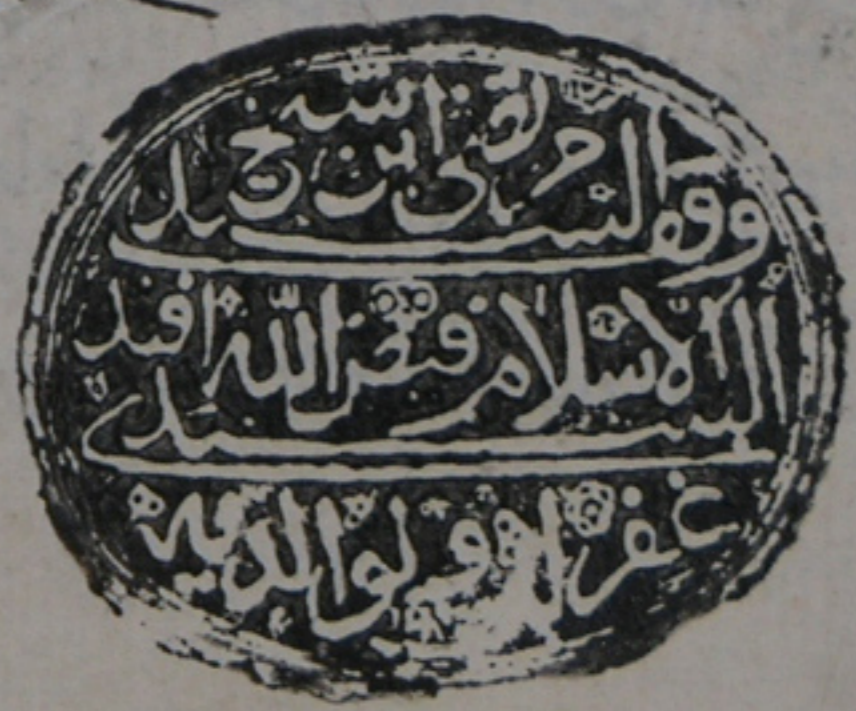 وقف السيد مرتضى ابن شيخ
الاسلام السيد فيض الله افندى
غفر له و لوالديه